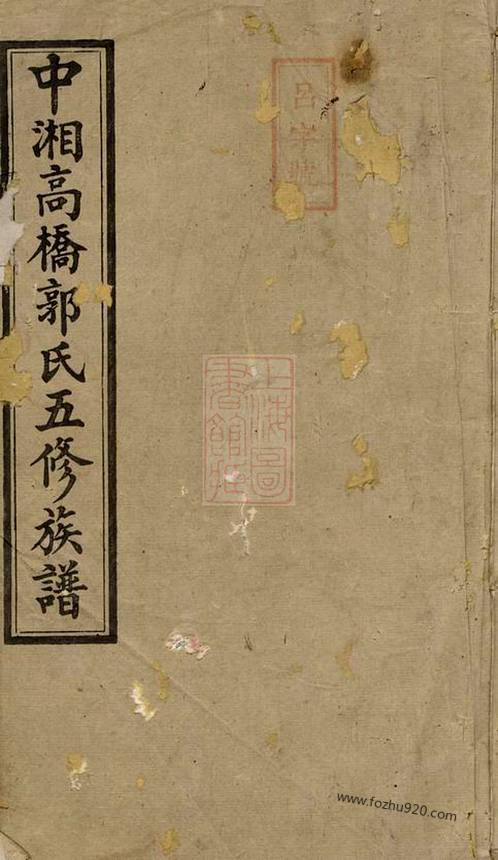 中湘高橋郭氏五修族譜
呂字號
上海圖
書館藏
www.fozhu920.com